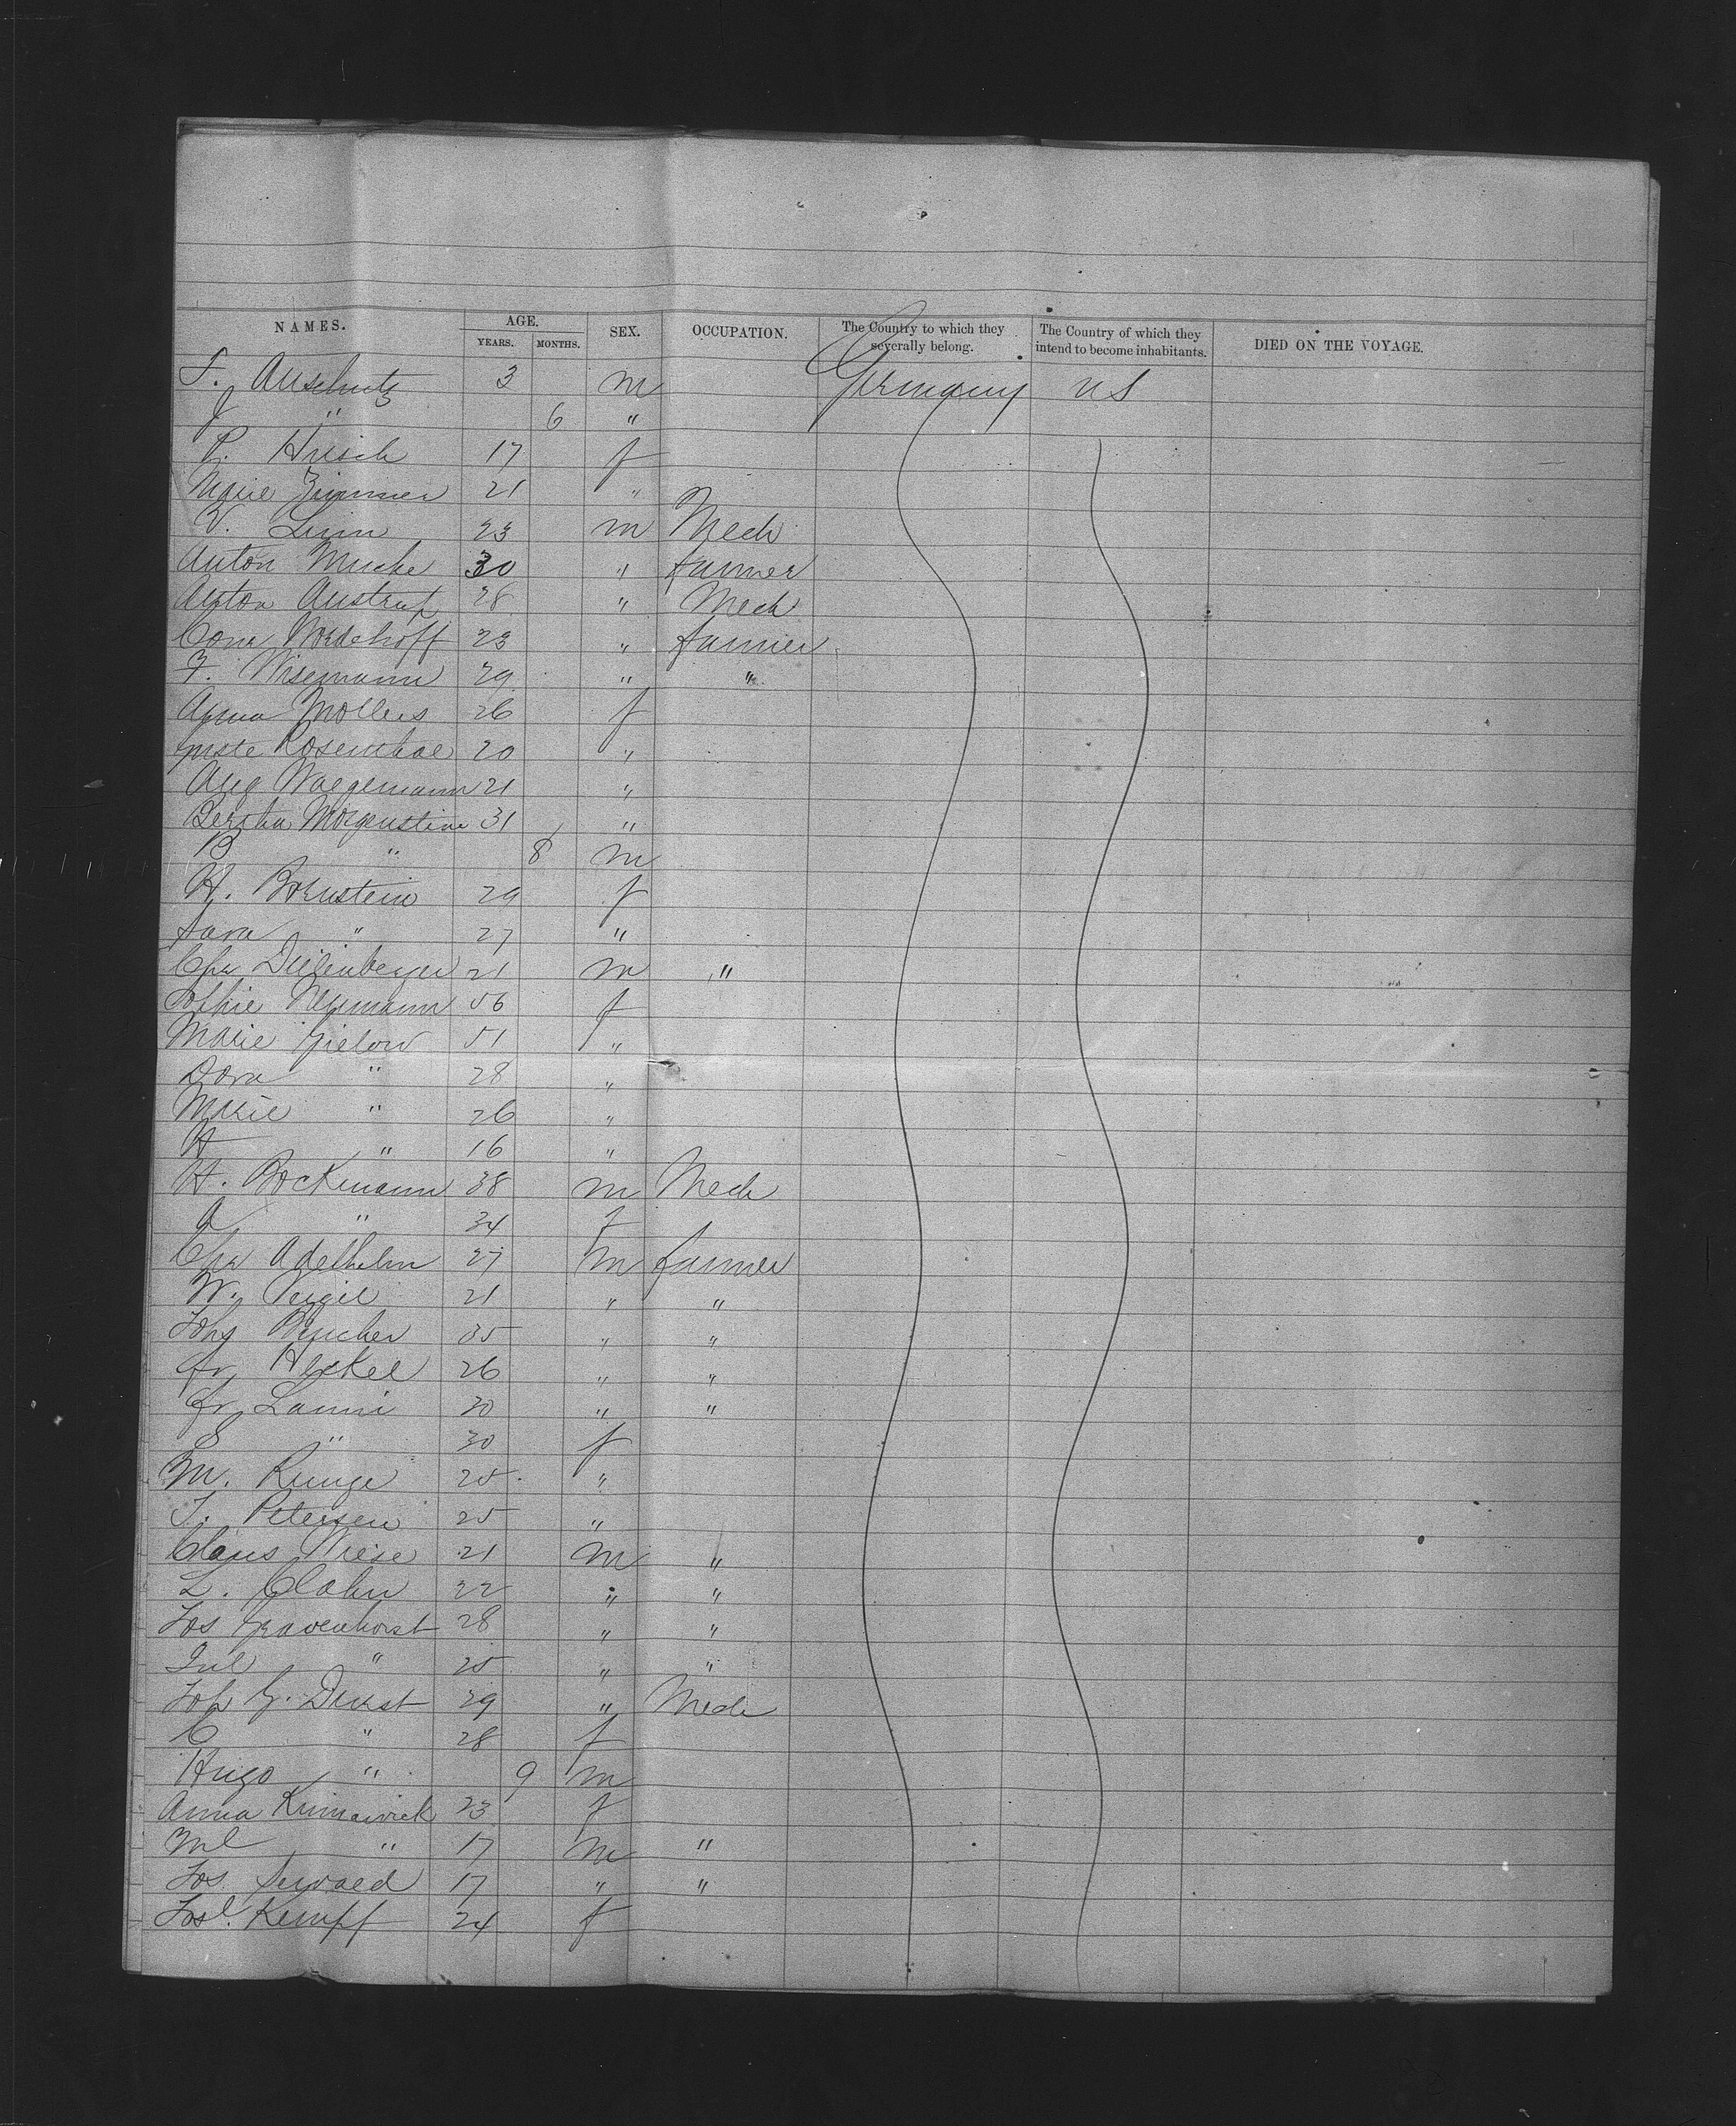 NAMES. AGE. SEX. OCCUPATION. The Country to which they severally belong. The Country of which they intend to become inhabitants. DIED ON THE VOYAGE.
YEARS. MONTHS.
F. Auschutz 3 m Germany US
J " 6 "
P. Hirsch 17 f
Marie Zimmer 21 "
V. Linn 23 m Mech
Anton Mucke 30 " farmer
Anton Austrup 28 " Mech
Conr Nordhoff 23 " farmer
F. Wisemann 29 " "
Anna Mollers 26 f
Rosenthal 20 "
Aug Waegemann 21 "
Bertha Morgenstine 31 "
B " 8 m
H. Bornstein 29 f
Sara " 27 "
Chr Dillenberger 21 m "
Sophie Neumann 56 f
Marie Gielow 51 "
Dora " 28 "
Marie " 26 "
H " 16 "
H. Bockmann 38 m Mech
A " 34 f
Chr Adelhelm 27 m farmer
W. 21 " "
Joh Buscher 35 " "
Fr Heckel 26 " "
Fr Lanni 30 " "
S " 30 f
M. Runge 25 "
T. Petersen 25 "
Claus Wiese 21 m "
L. Clahn 22 " "
Jos Gravenhorst 28 " "
Jul " 25 " "
Joh G. Durst 29 " Mech
C " 28 f
Hugo " 9 m
Anna 23 f
Ml " 17 m "
Jos Sewald 17 " "
Josl. Kempf 24 f